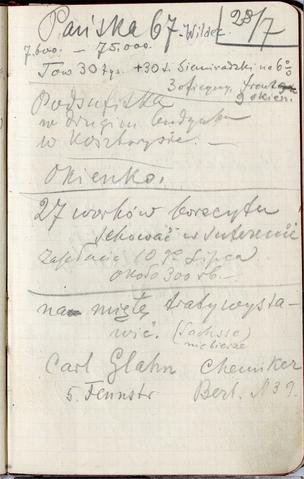 Pańska 67. Wilder 28/7
7.600. — 75.000.
Tow 30 tys. +30 t. Siemiradzki na 6%
3 oficyny, front
9 okien.
Podsufitka
w drugim budynku
w Kosztorysie. —
Okienko.
27 worków boracytu
w suterenie
10go Lipca
około 300 rb. —
na miętę traty wysta-
wić. (Sachsse)
nie bierze
Carl Glahn Chemiker
5. Fennstr Berl. N 39.